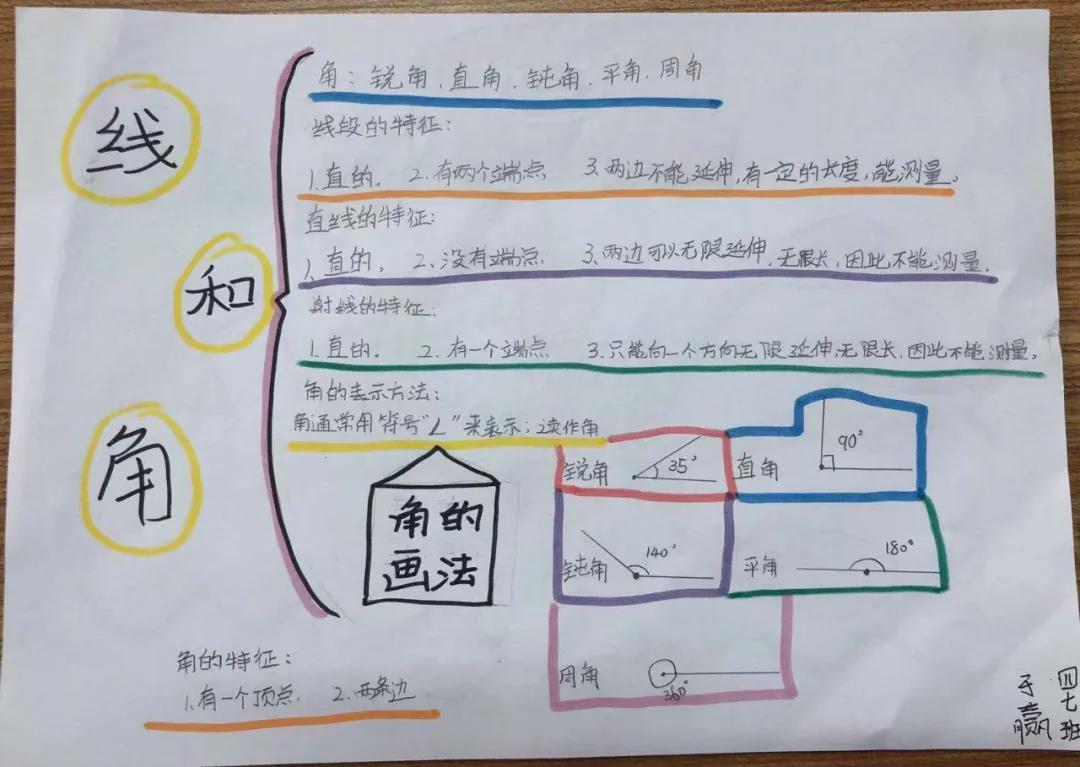 线
和
角
角：锐角、直角、钝角、平角、周角
线段的特征：
1、直的。 2、有两个端点 3、两边不能延伸，有一定的长度，能测量。
直线的特征：
1、直的。 2、没有端点 3、两边可以无限延伸，无限长，因此不能测量。
射线的特征：
1、直的。 2、有一个端点 3、只能向一个方向无限延伸，无限长，因此不能测量。
角的表示方法：
角通常用符号“∠”来表示；读作角
角的
画法
锐角 35°
直角 90°
钝角 140°
平角 180°
周角 360°
角的特征：
1、有一个顶点， 2、两条边
四七班
于赢